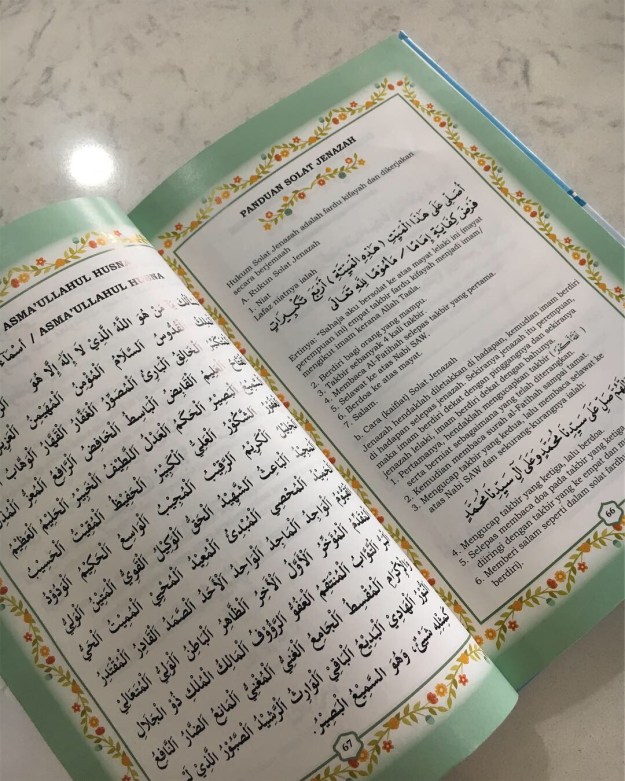 PANDUAN SOLAT JENAZAH
Hukum Solat Jenazah adalah fardu kifayah dan dikerjakan
secara berjemaah
A. Rukun Solat Jenazah
1. Niat
Lafaz niatnya ialah
أُصَلِّى عَلَى هَذَا الْمَيِّتِ (هَذِهِ الْمَيِّتَةِ) أَرْبَعَ تَكْبِيرَاتٍ
فَرْضَ كِفَايَةٍ إِمَامًا / مَأْمُومًا لِلَّهِ تَعَالَى
Ertinya: "Sahaja aku bersolat ke atas mayat lelaki ini (mayat
perempuan ini) empat takbir fardu kifayah menjadi imam/
mengikut imam kerana Allah Taala.
2. Berdiri bagi orang yang mampu.
3. Takbir sebanyak 4 kali takbir.
4. Membaca Al Fatihah selepas takbir yang pertama.
5. Selawat ke atas Nabi SAW.
6. Berdoa ke atas mayat.
7. Salam
b. Cara (kaifiat) Solat Jenazah
Jenazah hendaklah diletakkan di hadapan, kemudian imam berdiri
di hadapan selepas jenazah. Sekiranya jenazah itu perempuan,
maka imam berdiri dekat dengan pinggangnya dan sekiranya
jenazah lelaki, imam berdiri dekat dengan bahunya.
1. Pertamanya, hendaklah mengucapkan takbir
serta berniat sebagaimana yang telah diterangkan.
2. Kemudian membaca surah al-Fatihah sampai tamat
3. Mengucap takbir yang kedua, lalu membaca selawat ke
atas Nabi SAW dan sekurang kurangnya ialah:
اللَّهُمَّ صَلِّ عَلَى سَيِّدِنَا مُحَمَّدٍ وَعَلَى آلِ سَيِّدِنَا مُحَمَّدٍ
4. Mengucap takbir yang ketiga, lalu berdoa.
5. Selepas membaca doa pada takbir yang ketiga
diiringi dengan takbir yang ke empat dan
6. Memberi salam seperti dalam solat fardhu
berdiri).
66
ASMA'ULLAHUL HUSNA
/ ASMA'ULLAHUL HUSNA
هُوَ اللَّهُ الَّذِيْ لَا إِلَهَ إِلَّا هُوَ
الْقُدُّوْسُ السَّلَامُ الْمُؤْمِنُ الْمُهَيْمِنُ
الْخَالِقُ الْبَارِئُ الْمُصَوِّرُ الْغَفَّارُ الْقَهَّارُ الْوَهَّابُ
الْقَابِضُ الْبَاسِطُ الْخَافِضُ الرَّافِعُ الْمُعِزُّ
الْبَصِيْرُ الْحَكَمُ الْعَدْلُ اللَّطِيْفُ الْخَبِيْرُ الْحَلِيْمُ الْعَظِيْمُ
الشَّكُوْرُ الْعَلِيُّ الْكَبِيْرُ الْحَفِيْظُ الْمُقِيْتُ الْحَسِيْبُ
الْكَرِيْمُ الرَّقِيْبُ الْمُجِيْبُ الْوَاسِعُ الْحَكِيْمُ الْوَدُوْدُ
الْبَاعِثُ الشَّهِيْدُ الْحَقُّ الْوَكِيْلُ الْقَوِيُّ الْمَتِيْنُ الْوَلِيُّ
الْمُحْصِي الْمُبْدِئُ الْمُعِيْدُ الْمُحْيِي الْمُمِيْتُ الْحَيُّ
الْقَيُّوْمُ الْوَاجِدُ الْمَاجِدُ الْوَاحِدُ الْأَحَدُ الصَّمَدُ الْقَادِرُ الْمُقْتَدِرُ
الْمُؤَخِّرُ الْأَوَّلُ الْآخِرُ الظَّاهِرُ الْبَاطِنُ الْوَالِيُ الْمُتَعَالِيْ
التَّوَّابُ الْمُنْتَقِمُ الْعَفُوُّ الرَّؤُوْفُ الْمَالِكُ الْمُلْكِ ذُو الْجَلَالِ
وَالْإِكْرَامِ الْمُقْسِطُ الْجَامِعُ الْغَنِيُّ الْمُغْنِيُ الْمَانِعُ الضَّارُّ النَّافِعُ
النُّوْرُ الْهَادِيْ الْبَدِيْعُ الْبَاقِي الْوَارِثُ الرَّشِيْدُ الصَّبُوْرُ الَّذِيْ
كَمِثْلِهِ شَيْئٌ، وَهُوَ السَّمِيْعُ الْبَصِيْرُ.
67